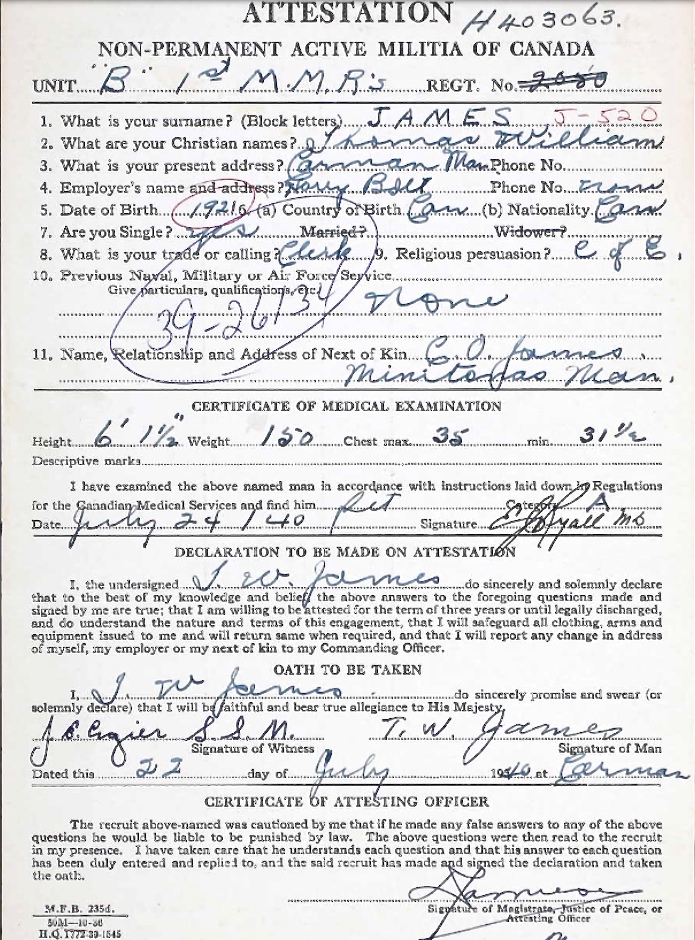 ATTESTATION H403063.
NON-PERMANENT ACTIVE MILITIA OF CANADA
UNIT "B" 1st M.M.R's REGT. No. 2080
1. What is your surname? (Block letters) JAMES J-520
2. What are your Christian names? Thomas William
3. What is your present address? Carman Man Phone No.
4. Employer's name and address? Harry Bolt Phone No. none
5. Date of Birth 1921 6. (a) Country of Birth Can (b) Nationality Can
7. Are you Single? yes Married? Widower?
8. What is your trade or calling? Clerk 9. Religious persuasion? C of E.
10. Previous Naval, Military or Air Force Service
Give particulars, qualifications, etc. none
39-26134
11. Name, Relationship and Address of Next of Kin C.O. James.
Minitonas Man.
CERTIFICATE OF MEDICAL EXAMINATION
Height 6' 1½" Weight 150 Chest max. 35 min. 31½
Descriptive marks
I have examined the above named man in accordance with instructions laid down by Regulations
for the Canadian Medical Services and find him fit Category A
Date July 24/40 Signature Ryall MD
DECLARATION TO BE MADE ON ATTESTATION
I, the undersigned T. W. James do sincerely and solemnly declare
that to the best of my knowledge and belief the above answers to the foregoing questions made and
signed by me are true; that I am willing to be attested for the term of three years or until legally discharged,
and do understand the nature and terms of this engagement, that I will safeguard all clothing, arms and
equipment issued to me and will return same when required, and that I will report any change in address
of myself, my employer or my next of kin to my Commanding Officer.
OATH TO BE TAKEN
I, T W James do sincerely promise and swear (or
solemnly declare) that I will be faithful and bear true allegiance to His Majesty.
S.S.M. T. W. James
Signature of Witness Signature of Man
Dated this 22 day of July 1940 at Carman
CERTIFICATE OF ATTESTING OFFICER
The recruit above-named was cautioned by me that if he made any false answers to any of the above
questions he would be liable to be punished by law. The above questions were then read to the recruit
in my presence. I have taken care that he understands each question and that his answer to each question
has been duly entered and replied to, and the said recruit has made and signed the declaration and taken
the oath.
M.F.B. 235d. Signature of Magistrate, Justice of Peace, or
50M—10-36 Attesting Officer
H.Q. 1772-39-1545